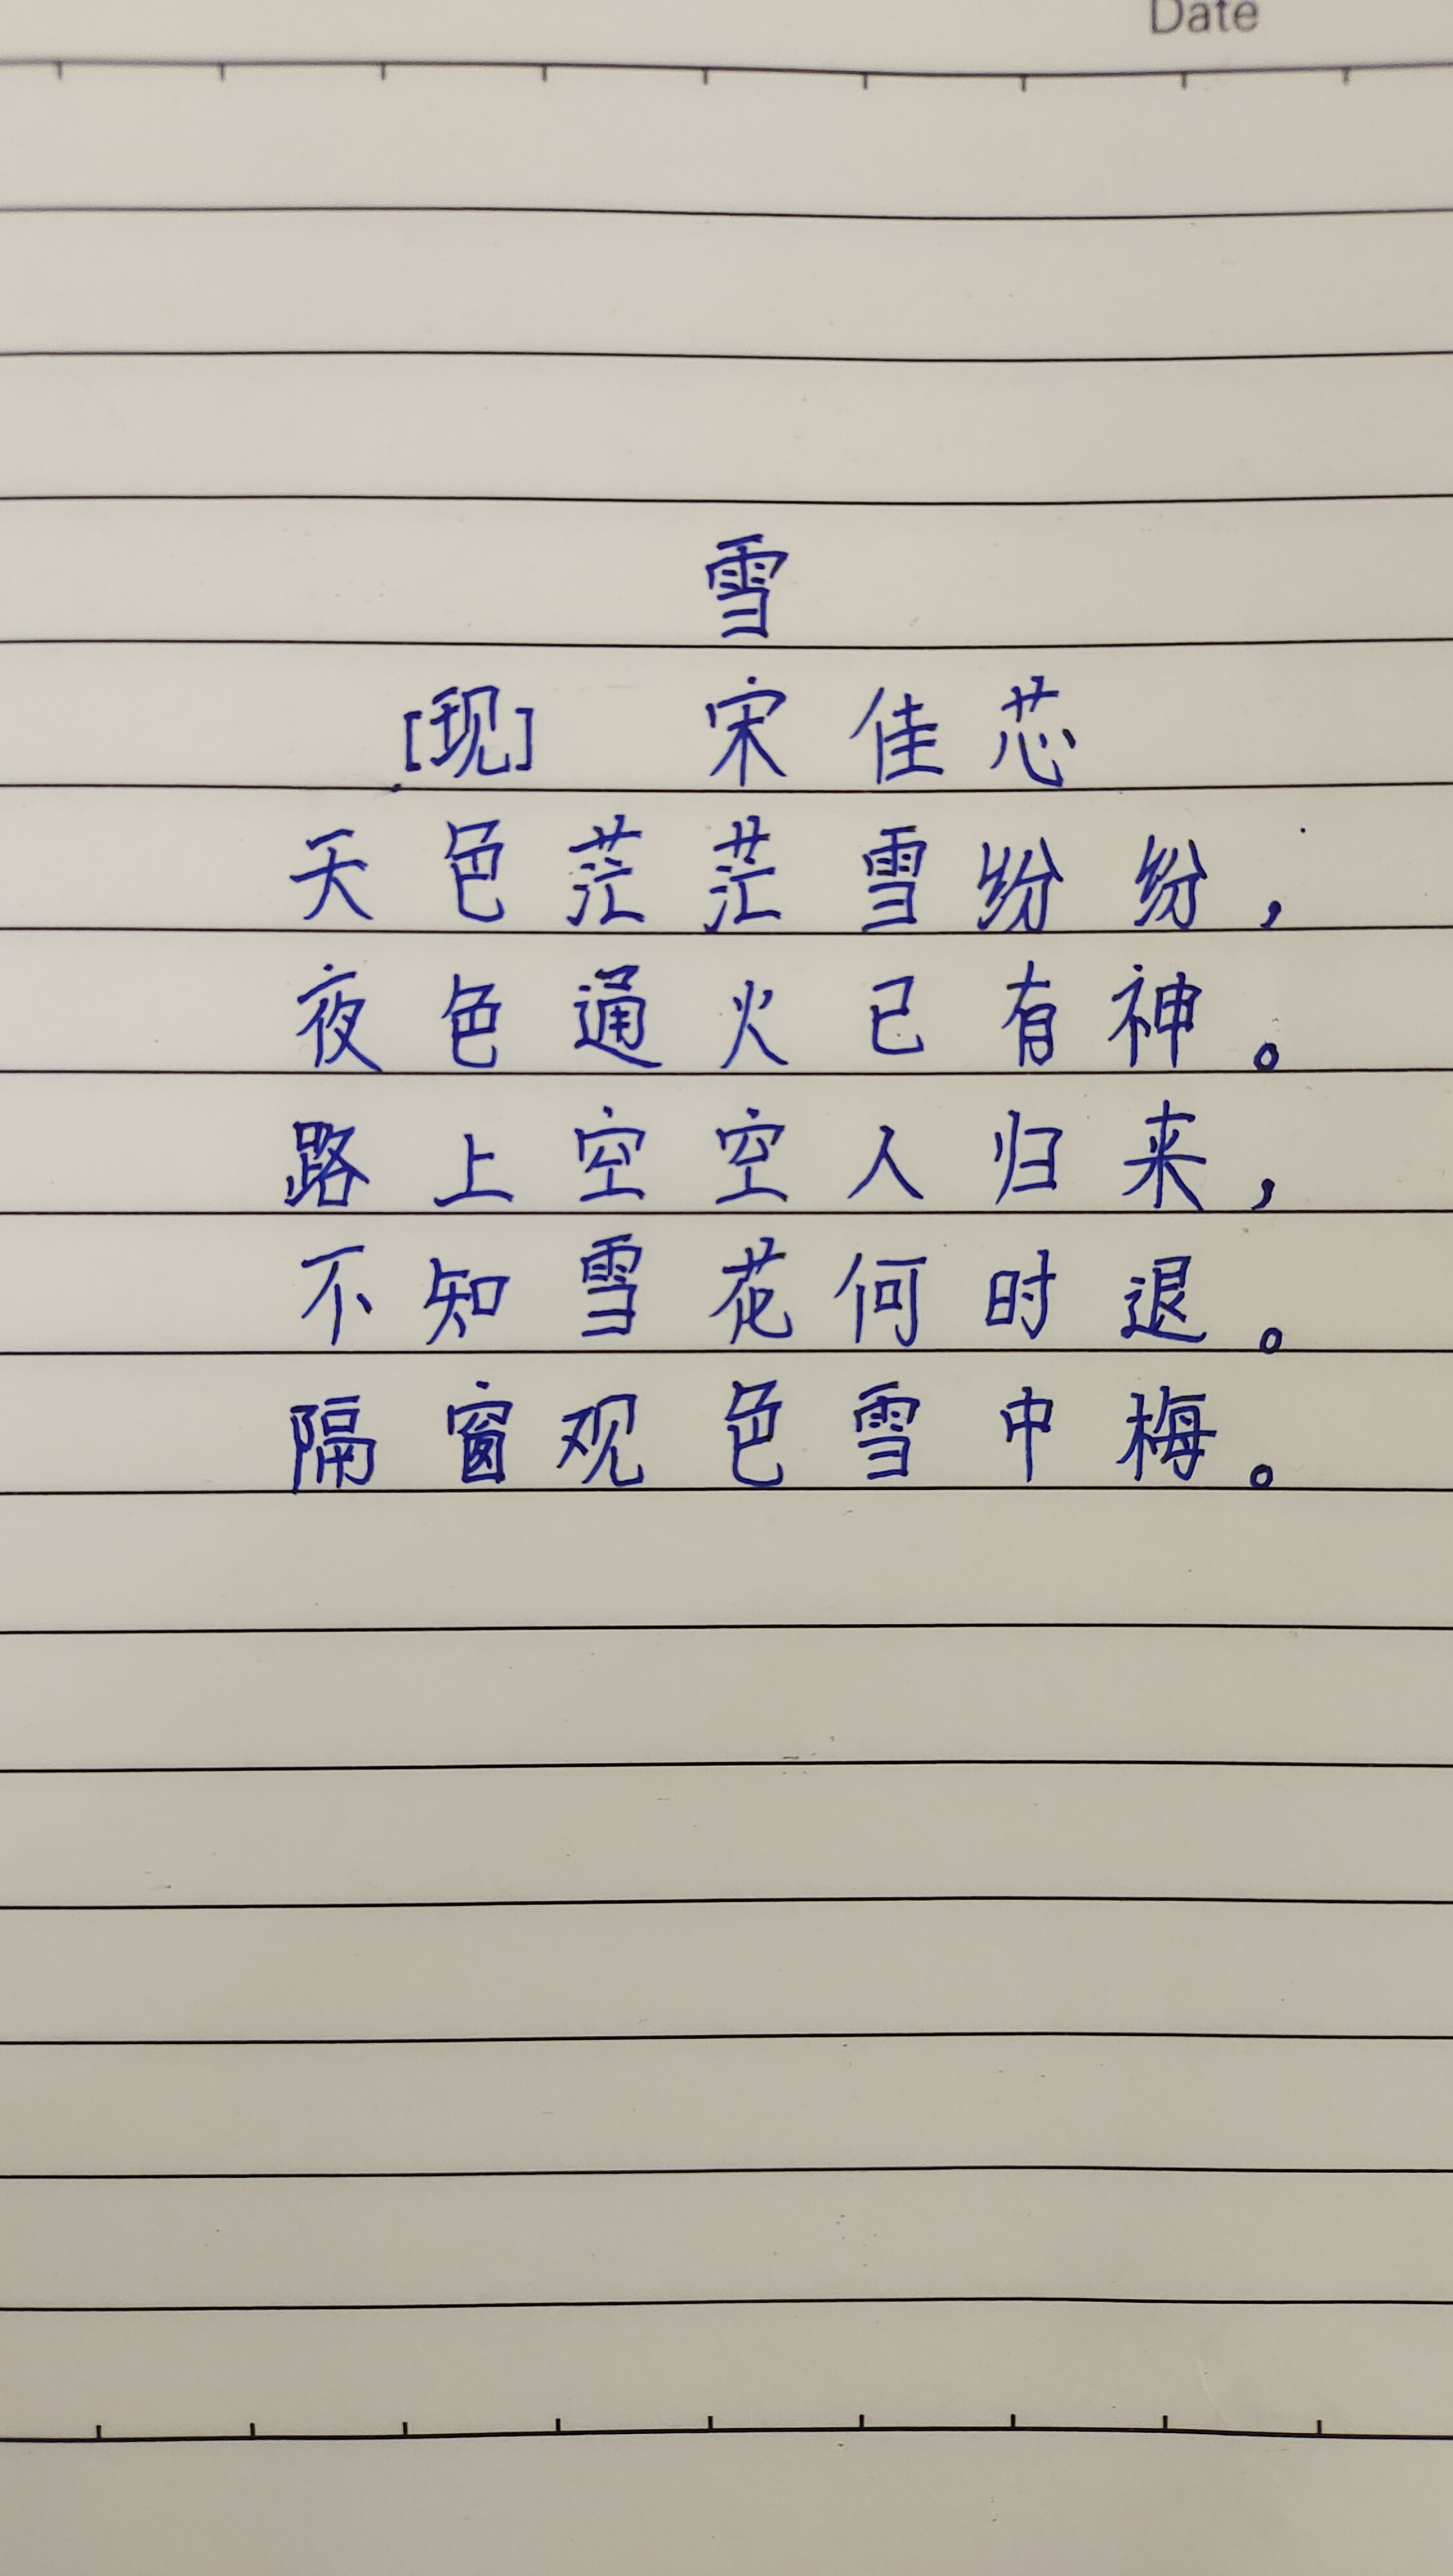 Date
雪
[现] 宋佳芯
天色茫茫雪纷纷，
夜色通火已有神。
路上空空人归来，
不知雪花何时退。
隔窗观色雪中梅。